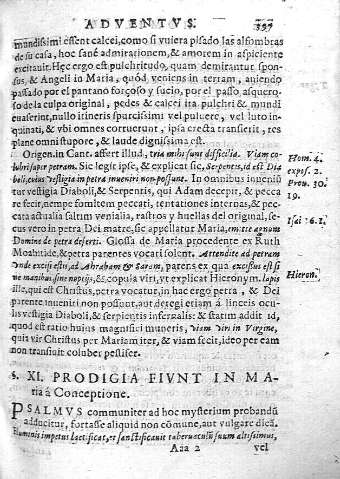 ADVENTVS. 397
mundissimi essent calcei, como si vuiera pisado las alfombras
de su casa, hoc sanè admirationem, & amorem in aspiciente
excitauit. Hęc ergo est pulchritudo, quam demirantur spon-
sus, & Angeli in Maria, quòd, veniens in terram, auiendo
passado por el pantano forçoso y sucio, por el passo asquero-
so de la culpa original, pedes & calcei ita pulchri & mundi
euaserint, nullo itineris spurcissimi vel puluere, vel luto in-
quinati, & vbi omnes corruerunt, ipsa erecta transierit, res
planè omni stupore, & laude dignissima est.
Origen. in Cant. assert illud, tria mihi sunt difficilia. Viam co-
lubri super petram. Sic legit ipse, & explicat sic, Serpentis, id est Dia-
boli, cuius vestigia in petra inueniri non possunt. In omnibus inueniũ
tur vestigia Diaboli, & Serpentis, qui Adam decepit, & pecca
re fecit, nempe fomitem peccati, tentationes internas, & pec-
cata actualia saltim venialia, rastros y huellas del original, se
cus vero in petra Dei matre, sic appellatur Maria, emitte agnum
Domine de petra deserti. Glossa de Maria procedente ex Ruth
Moabitide, & petra parentes vocari solent. Attendite ad petram
vnde excisi estis, ad Abraham & Saram, parens ex qua excisus est si
ne manibus sine nuptijs, &c. copula viri, vt explicat Hieronym. lapis
ille, qui est Christus, petra vocatur, in hac ergo petra, & Dei
parente inueniri non possunt, aut deregi etiam à linceis ocu-
lis vestigia Diaboli, & serpentis infernalis: & statim addit id,
quod est ratio huius magnifici muneris, viam viri in Virgine,
quis vir Christus per Mariam iter, & viam fecit, ideo per eam
non transiuit coluber pestifer.
Hom. 4.
expos. 2.
Prou. 30.
19.
Isai 16.1.
Hieron.
§. XI. PRODIGIA FIVNT IN MA-
ria à Conceptione.
PSALMVS communiter ad hoc mysterium probandũ
adducitur, fortasse aliquid non cõmune, aut vulgare dicã.
Fluminis impetus laetificat, et sanctificauit tabernaculũ suum altissimus,
Aaa 2 vel